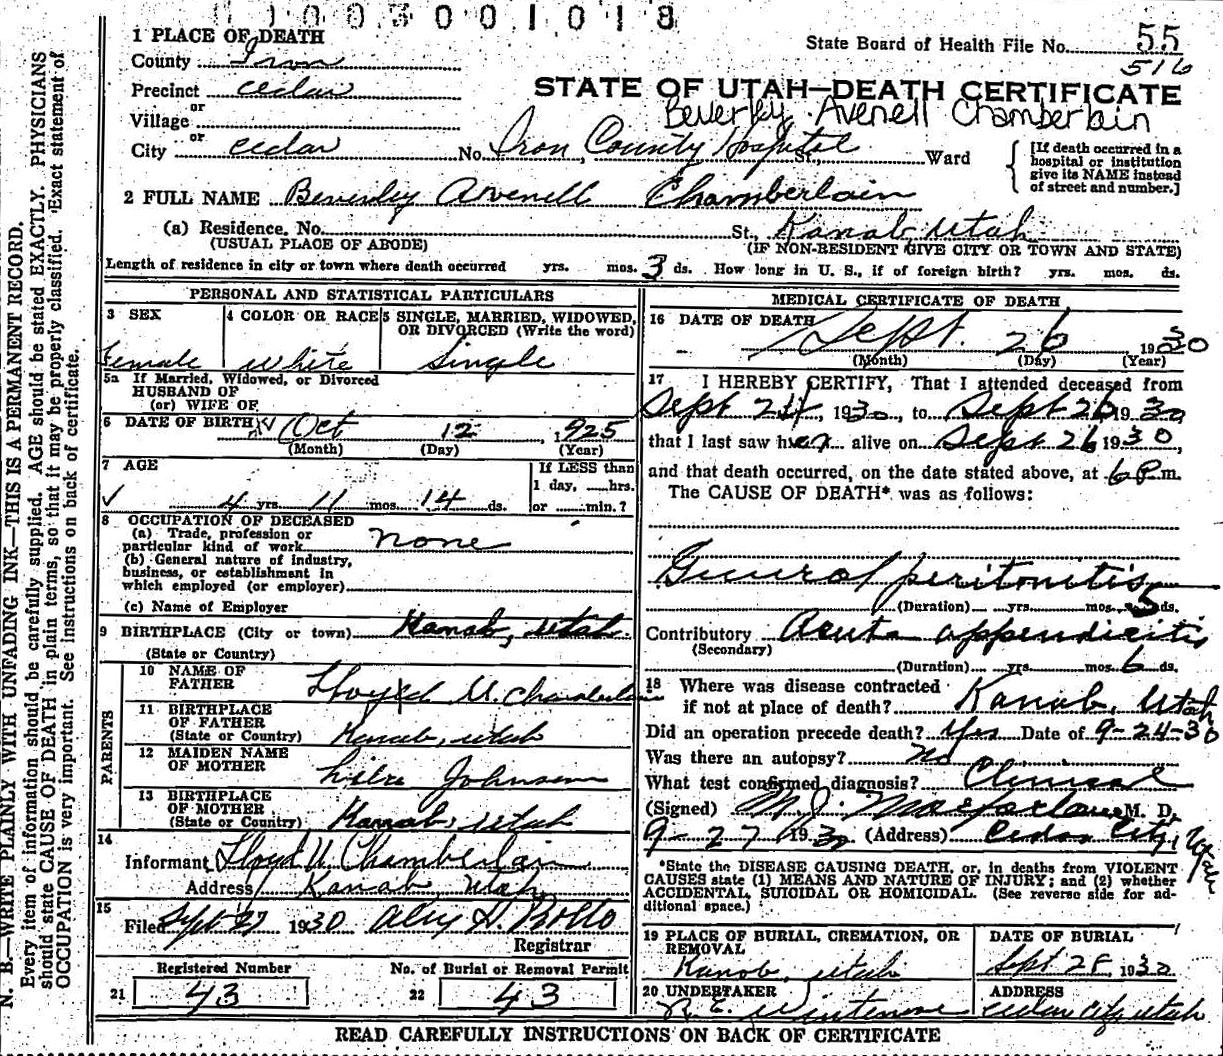 1003001018
1 PLACE OF DEATH
State Board of Health File No. 55
516
County Iron
STATE OF UTAH—DEATH CERTIFICATE
Precinct Cedar
Beverley Avenell Chamberlain
or
Village
or
City Cedar No. Iron County Hospital St., Ward
[If death occurred in a hospital or institution give its NAME instead of street and number.]
2 FULL NAME Beverley Avenell Chamberlain
(a) Residence. No. St., Kanab, Utah
(USUAL PLACE OF ABODE) (IF NON-RESIDENT GIVE CITY OR TOWN AND STATE)
Length of residence in city or town where death occurred yrs. mos. 3 ds. How long in U. S., if of foreign birth? yrs. mos. ds.
PERSONAL AND STATISTICAL PARTICULARS
3 SEX 4 COLOR OR RACE 5 SINGLE, MARRIED, WIDOWED, OR DIVORCED (Write the word)
Female White Single
5a If Married, Widowed, or Divorced
HUSBAND OF
(or) WIFE OF
6 DATE OF BIRTH Oct 12 1925
(Month) (Day) (Year)
7 AGE
If LESS than
1 day, hrs.
4 yrs. 11 mos. 14 ds. or min.?
8 OCCUPATION OF DECEASED
(a) Trade, profession or
particular kind of work none
(b) General nature of industry,
business, or establishment in
which employed (or employer)
(c) Name of Employer
9 BIRTHPLACE (City or town) Kanab, Utah.
(State or Country)
PARENTS
10 NAME OF
FATHER Lloyd U. Chamberlain
11 BIRTHPLACE
OF FATHER
(State or Country) Kanab, Utah
12 MAIDEN NAME
OF MOTHER Johnson
13 BIRTHPLACE
OF MOTHER
(State or Country) Kanab, Utah
14
Informant Lloyd U. Chamberlain
Address Kanab Utah
15
Filed Sept 27 1930
Registrar
Registered Number No. of Burial or Removal Permit
21 43 22 43
MEDICAL CERTIFICATE OF DEATH
16 DATE OF DEATH Sept. 26 1930
(Month) (Day) (Year)
17 I HEREBY CERTIFY, That I attended deceased from
Sept 24, 1930, to Sept 26 1930
that I last saw her alive on Sept 26 1930,
and that death occurred, on the date stated above, at 6 P.m.
The CAUSE OF DEATH* was as follows:
General peritonitis
(Duration) yrs. mos. 5 ds.
Contributory Acute appendicitis
(Secondary)
(Duration) yrs. mos. 6 ds.
18 Where was disease contracted
if not at place of death? Kanab, Utah
Did an operation precede death? Yes Date of 9-24-30
Was there an autopsy? No
What test confirmed diagnosis? Clinical
(Signed) M. J. Macfarlane M. D.
9-27 1930 (Address) Cedar City, Utah
*State the DISEASE CAUSING DEATH, or, in deaths from VIOLENT
CAUSES state (1) MEANS AND NATURE OF INJURY; and (2) whether
ACCIDENTAL, SUICIDAL OR HOMICIDAL. (See reverse side for ad-
ditional space.)
19 PLACE OF BURIAL, CREMATION, OR REMOVAL DATE OF BURIAL
Kanab, Utah Sept 28, 1930
20 UNDERTAKER ADDRESS
Cedar City Utah
READ CAREFULLY INSTRUCTIONS ON BACK OF CERTIFICATE
N. B.—WRITE PLAINLY WITH UNFADING INK—THIS IS A PERMANENT RECORD.
Every item of information should be carefully supplied. AGE should be stated EXACTLY. PHYSICIANS
should state CAUSE OF DEATH in plain terms, so that it may be properly classified. Exact statement of
OCCUPATION is very important. See instructions on back of certificate.